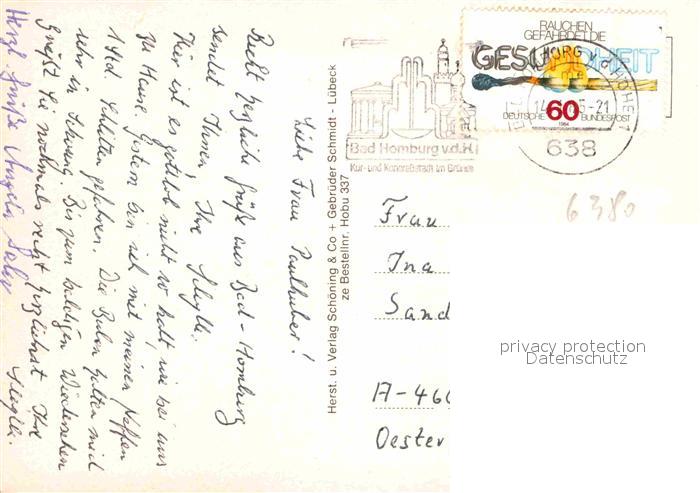 Liebe Frau Paulhuber!
Recht herzliche Grüße aus Bad-Homburg
sendet Ihnen Ihre Sibylle.
Hier ist es Gott lob nicht so kalt, wie bei uns
zu Hause. Gestern bin ich mit meinem Neffen
1 Std. Schlitten gefahren. Die Buben halten mich
sehr in Schwung. Bis zum baldigen Wiedersehen
grüßt Sie nochmals recht herzlichst Ihre
Sibylle.
Herzl. Grüße Angela
Herst. u. Verlag Schöning & Co + Gebrüder Schmidt - Lübeck
ze Bestellnr. Hobu 337
Bad Homburg v.d.H.
Kur- und Kongreßstadt im Grünen
RAUCHEN
GEFÄHRDET DIE
GESUNDHEIT
60
DEUTSCHE BUNDESPOST
1984
638
6380
Frau
Ina
Sand
A-466
Oester
privacy protection
Datenschutz